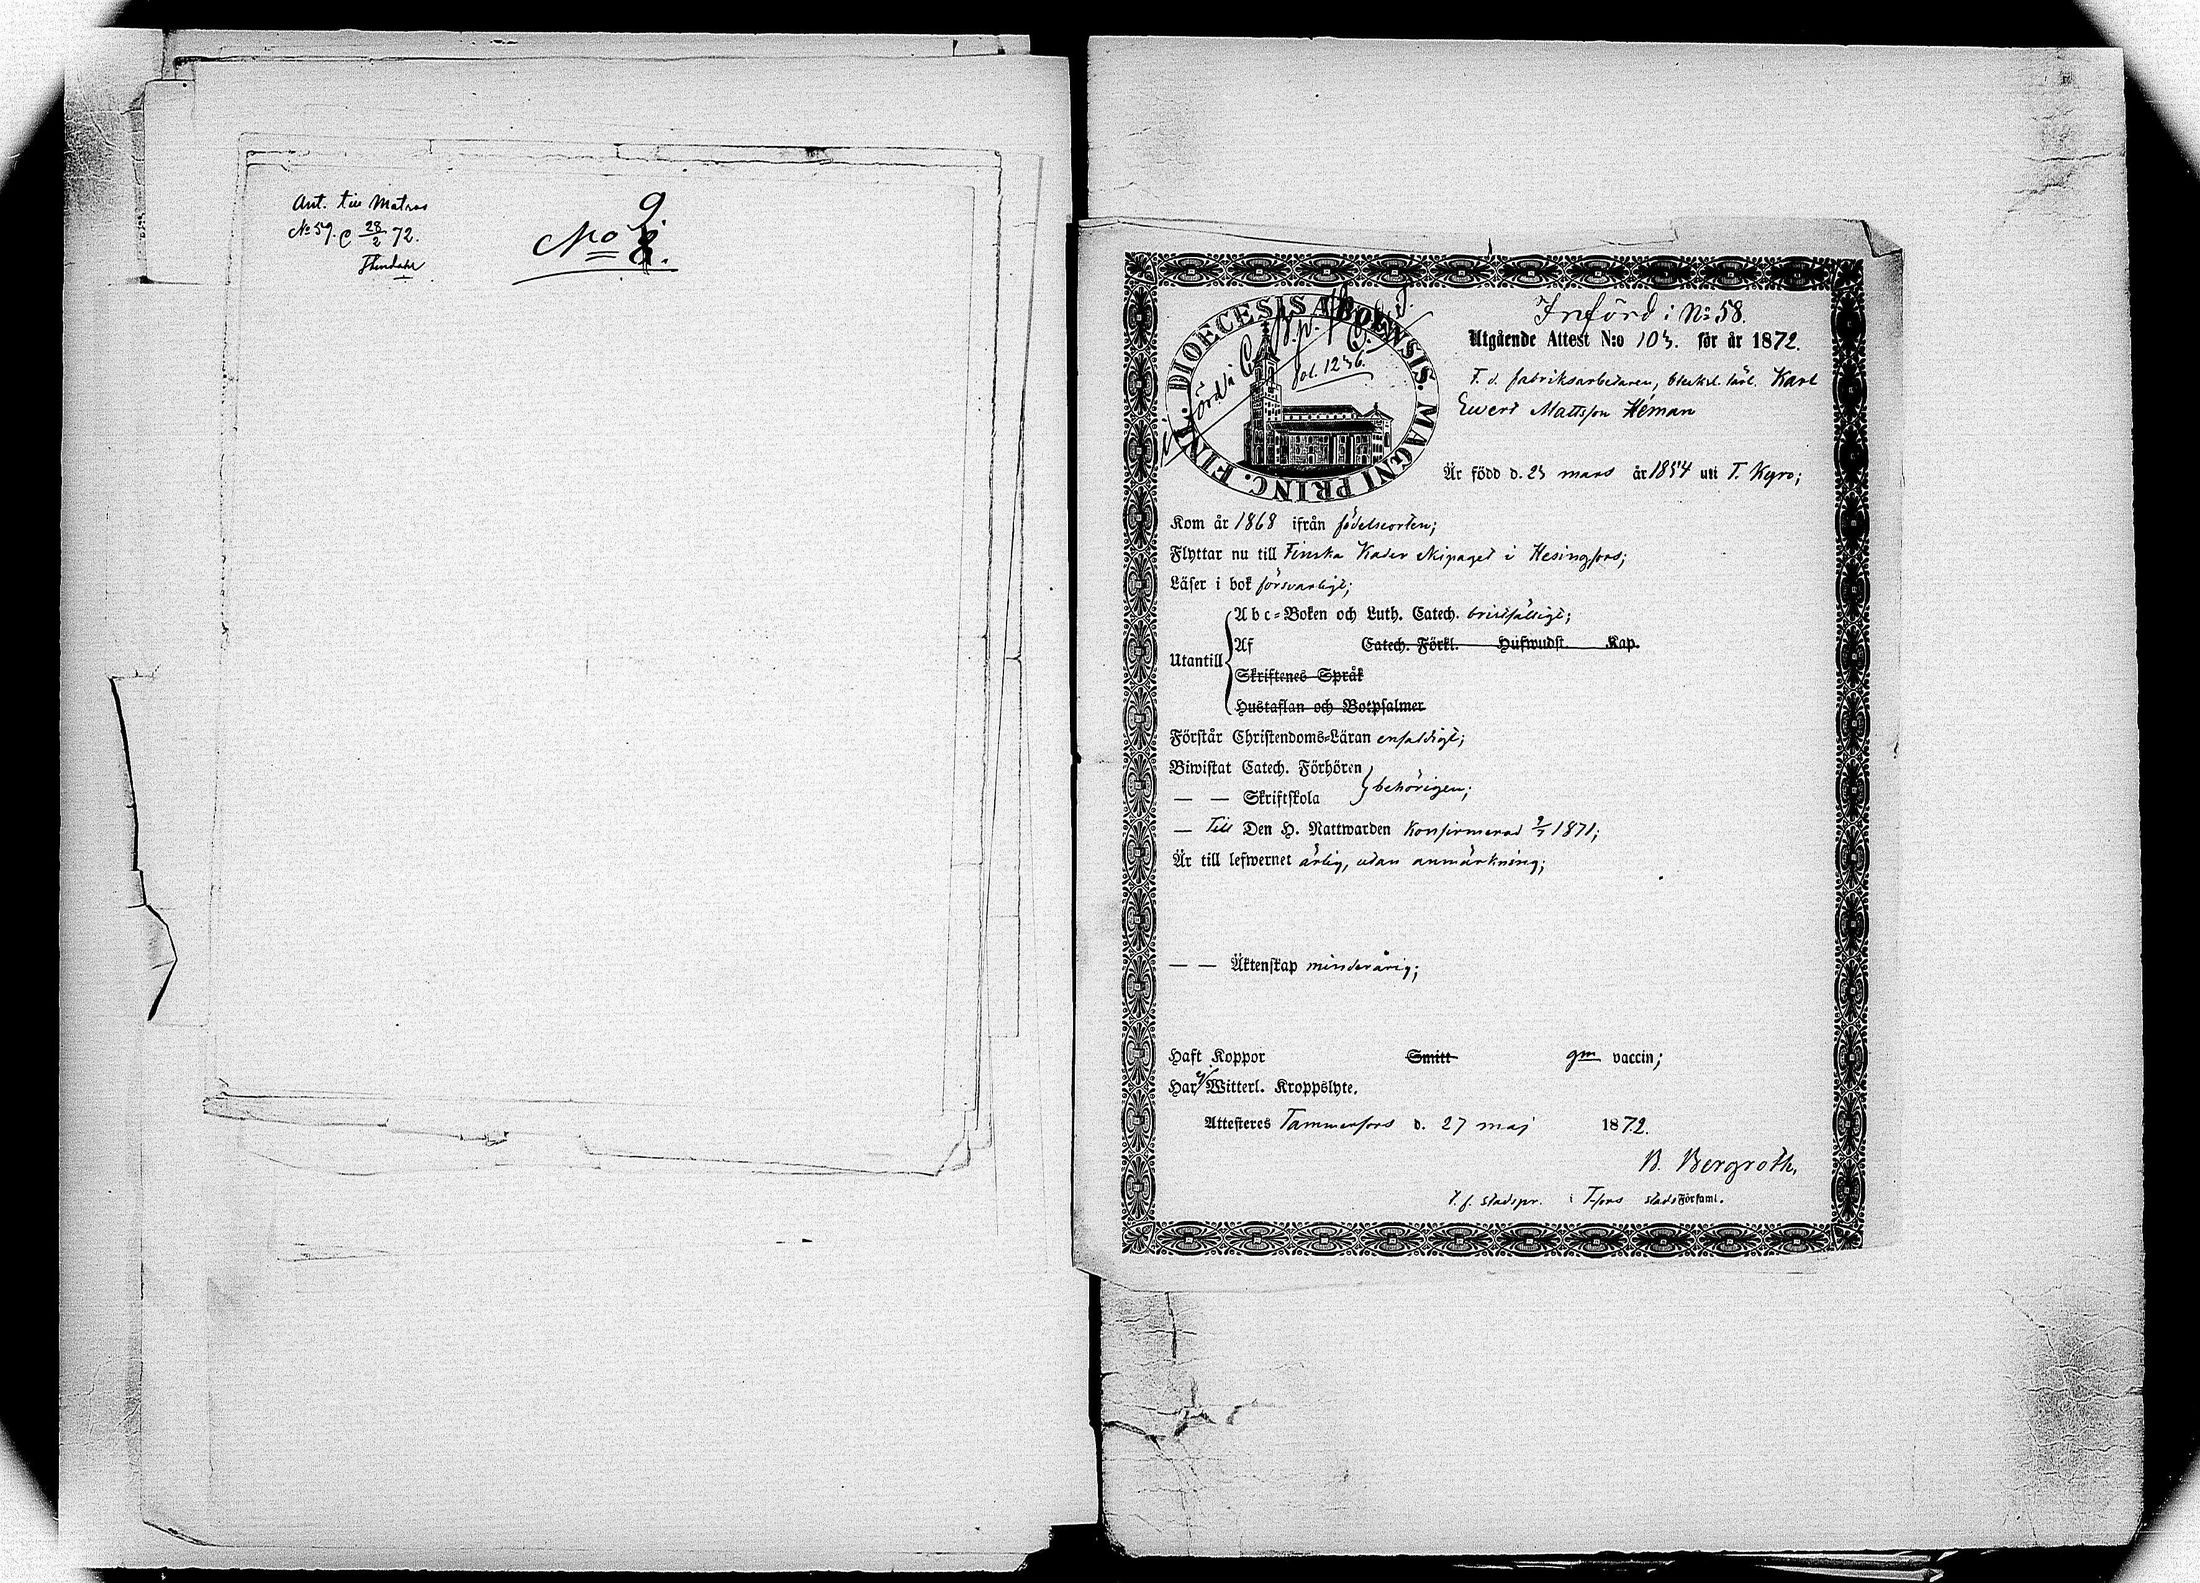 Ant. till Matros
No 59. C 28/2 72.
No 9
8.
DIOECESIS ABOENSIS. MAGNI PRINC. FINL.
Införd i
fol. 1236.
Införd i No 58.
Utgående Attest N:o 103. för år 1872.
F. d. fabriksarbetaren, Karl
Evert Mattsson Heman
Är född d. 23 mars år 1854 uti T. Kyro;
Kom år 1868 ifrån födelseorten;
Flyttar nu till Finska Kader ekipaget i Hesingfors;
Läser i bok försvarligt;
Utantill
Abc-Boken och Luth. Catech. bristfälligt;
Af Catech. Förkl. Hufwudst. Kap.
Skriftenes Språk
Hustaflan och Botpsalmer
Förstår Christendoms-Läran enfaldigt;
Biwistat Catech. Förhören
— — Skriftskola behörigen;
— Till Den H. Nattwarden konfirmerad 2/7 1871;
Är till lefwernet ärlig, utan anmärkning;
— — Äktenskap minderårig;
Haft Koppor Smitt gm vaccin;
Har ej Witterl. Kroppslyte.
Attesteres Tammerfors d. 27 maj 1872.
B. Bergroth,
t. f. stadspr. i T-fors stads Församl.